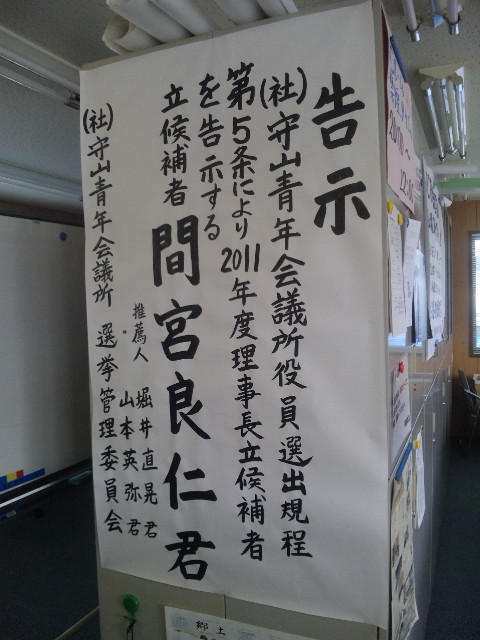 告示
(社)守山青年会議所役員選出規程
第5条により2011年度理事長立候補者
を告示する
立候補者 間宮良仁君
推薦人 堀井直晃君
山本英弥君
(社)守山青年会議所 選挙管理委員会
郷土